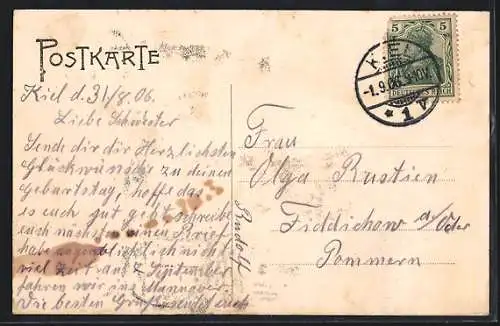 POSTKARTE
Kiel d. 31/8. 06.
Liebe Schwester
Sende dir die Herzlichsten
Glückwünsche zu deinen
Geburtstag, hoffe das
es euch gut geht schreibe
euch nächstens einen Brief
habe augenblicklich nicht
viel Zeit am September
fahren wir ins Manöver.
Die besten Grüße sendet euch
Rudolf
5 5
DEUTSCHES REICH
KIEL
-1.9.06. 9-10V.
* 1 v
Frau
Olga Rustien
Fiddichow a/Oder
Pommern